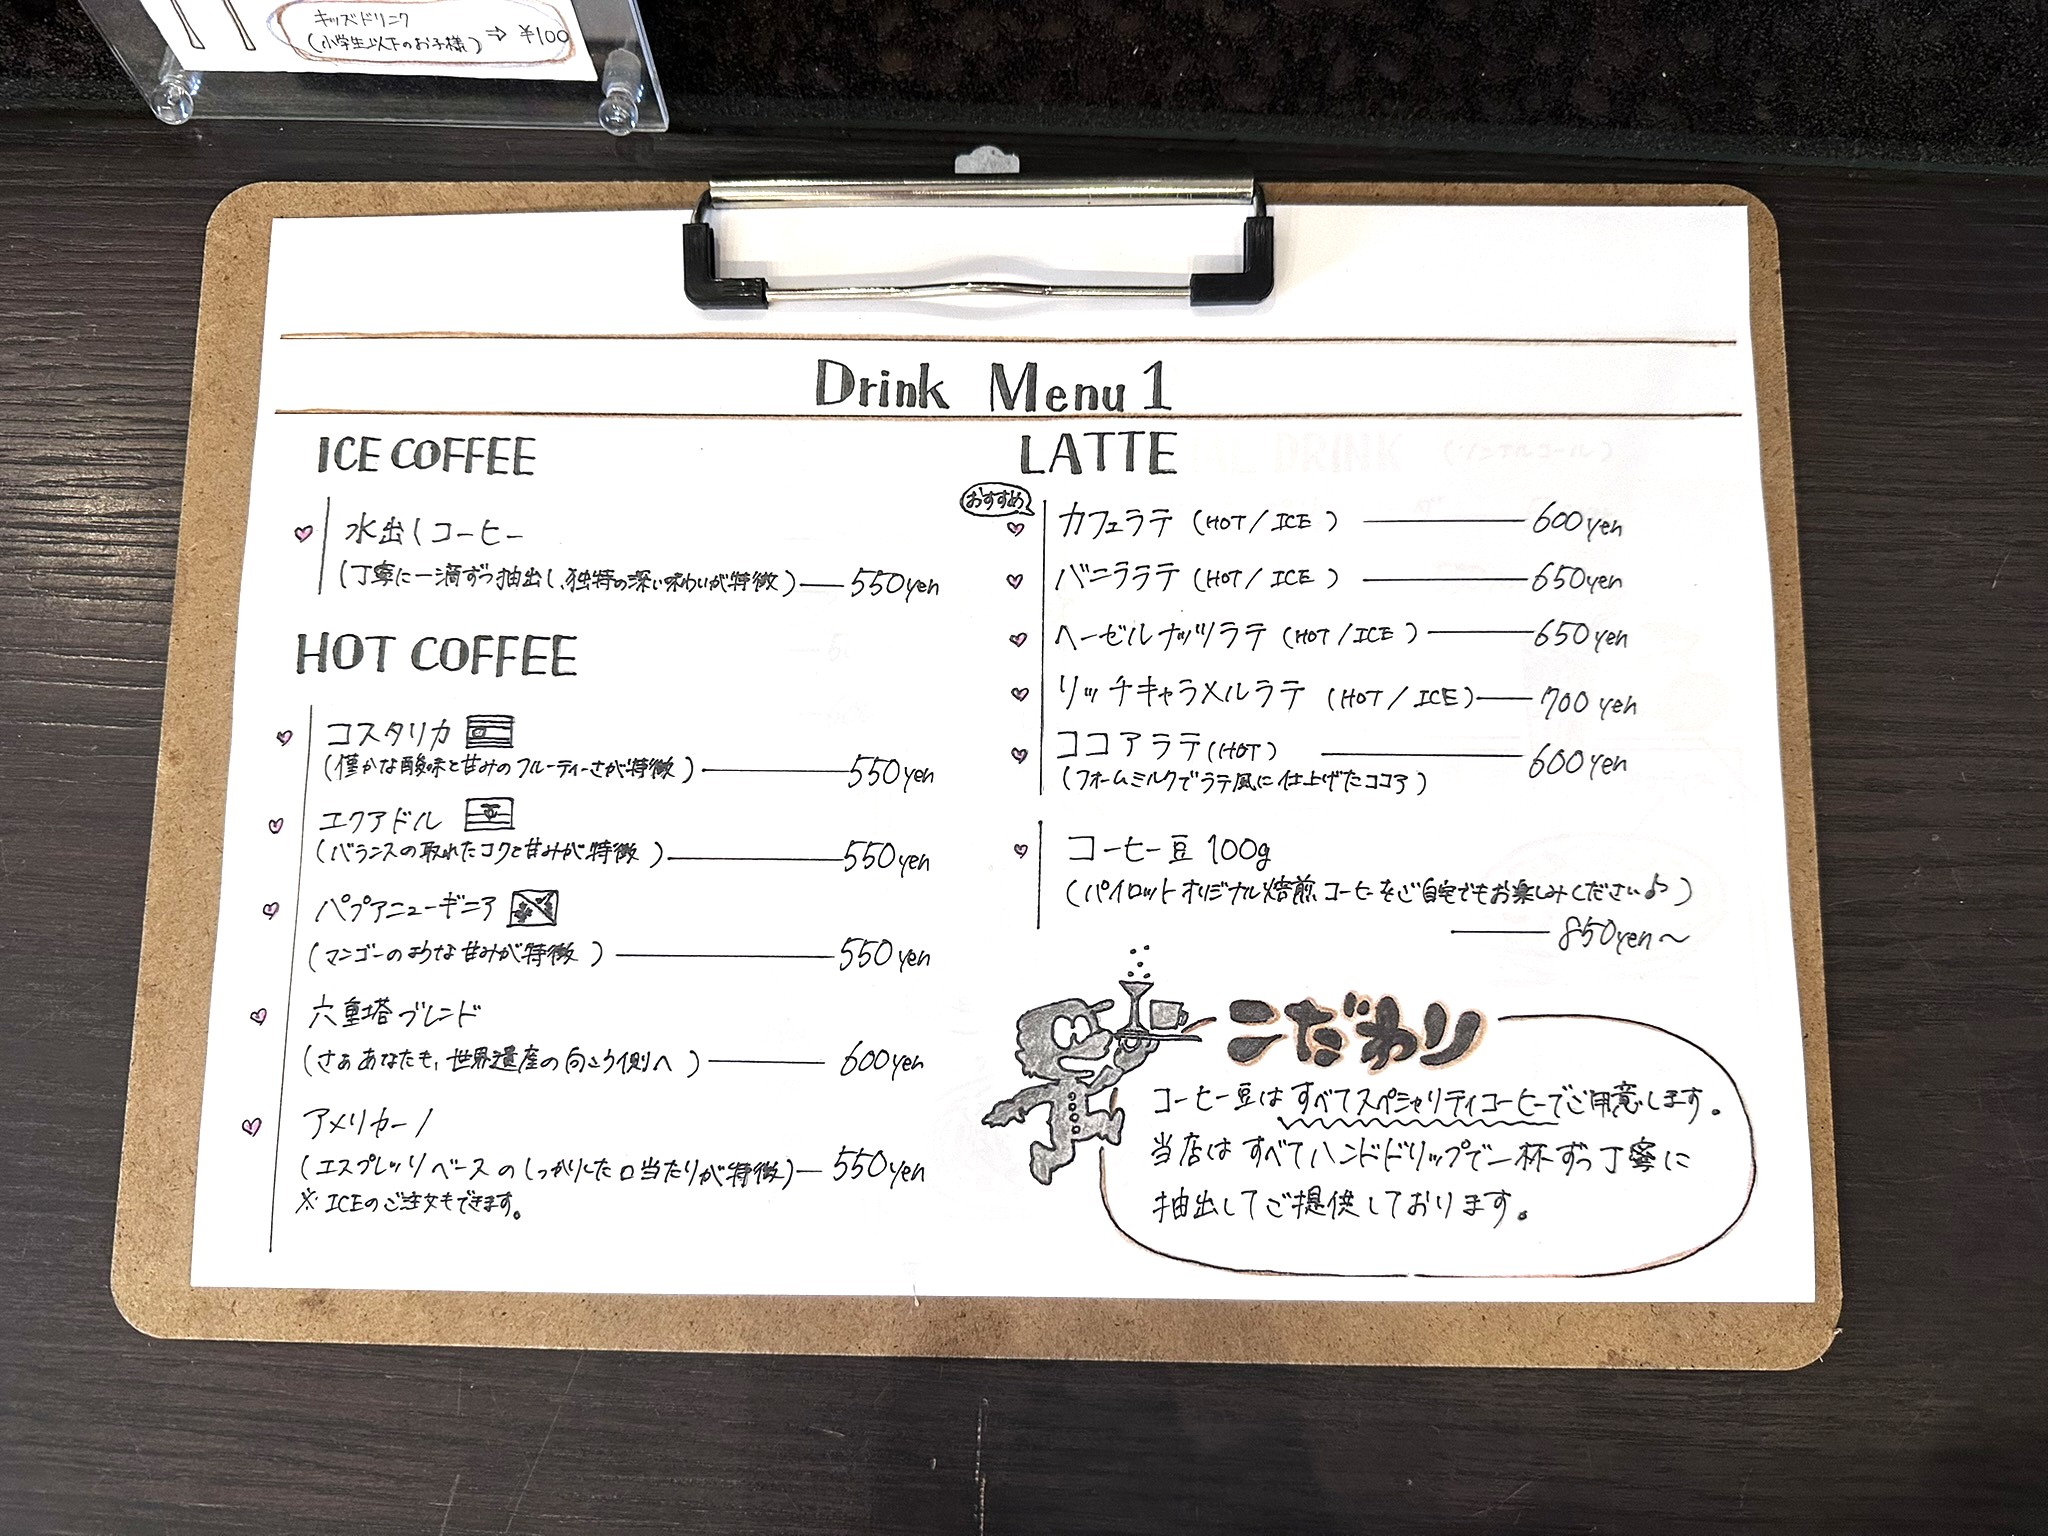 キッズドリンク
(小学生以下のお子様) ⇒ ¥100
Drink Menu 1
ICE COFFEE
水出しコーヒー
(丁寧に一滴ずつ抽出し、独特の深い味わいが特徴) 550yen
HOT COFFEE
コスタリカ
(僅かな酸味と甘みのフルーティーさが特徴) 550yen
エクアドル
(バランスの取れたコクと甘みが特徴) 550yen
パプアニューギニア
(マンゴーのような甘みが特徴) 550yen
六重塔ブレンド
(さぁあなたも、世界遺産の向こう側へ) 600yen
アメリカーノ
(エスプレッソベースのしっかりした口当たりが特徴) 550yen
※ICEのご注文もできます。
LATTE
おすすめ
カフェラテ (HOT/ICE) 600yen
バニララテ (HOT/ICE) 650yen
ヘーゼルナッツラテ (HOT/ICE) 650yen
リッチキャラメルラテ (HOT/ICE) 700yen
ココアラテ(HOT) 600yen
(フォームミルクでラテ風に仕上げたココア)
コーヒー豆 100g
(パイロットオリジナル焙煎コーヒーをご自宅でもお楽しみください♪)
850yen〜
こだわり
コーヒー豆はすべてスペシャリティコーヒーでご用意します。
当店はすべてハンドドリップで一杯ずつ丁寧に
抽出してご提供しております。